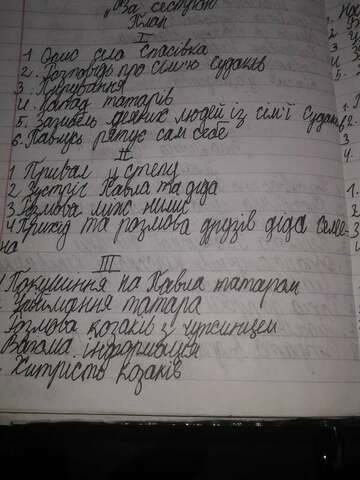 „За сестрою"
План
I
1. Опис села Спасівка
2. Розповідь про сім'ю Судаків
3. Пірування
4. Напад татарів
5. Загибель деяких людей із сім'ї Судаків
6. Павлусь рятує сам себе
II
1 Привал у степу
2 Зустріч Павла та діда
3 Розмова між ними
4 Прихід та розмова друзів діда Семе-
на
III
Покушиння на Павла татаром
татара
Розмова козаків з чужинцем
Вагома інформація
Хитрість козаків